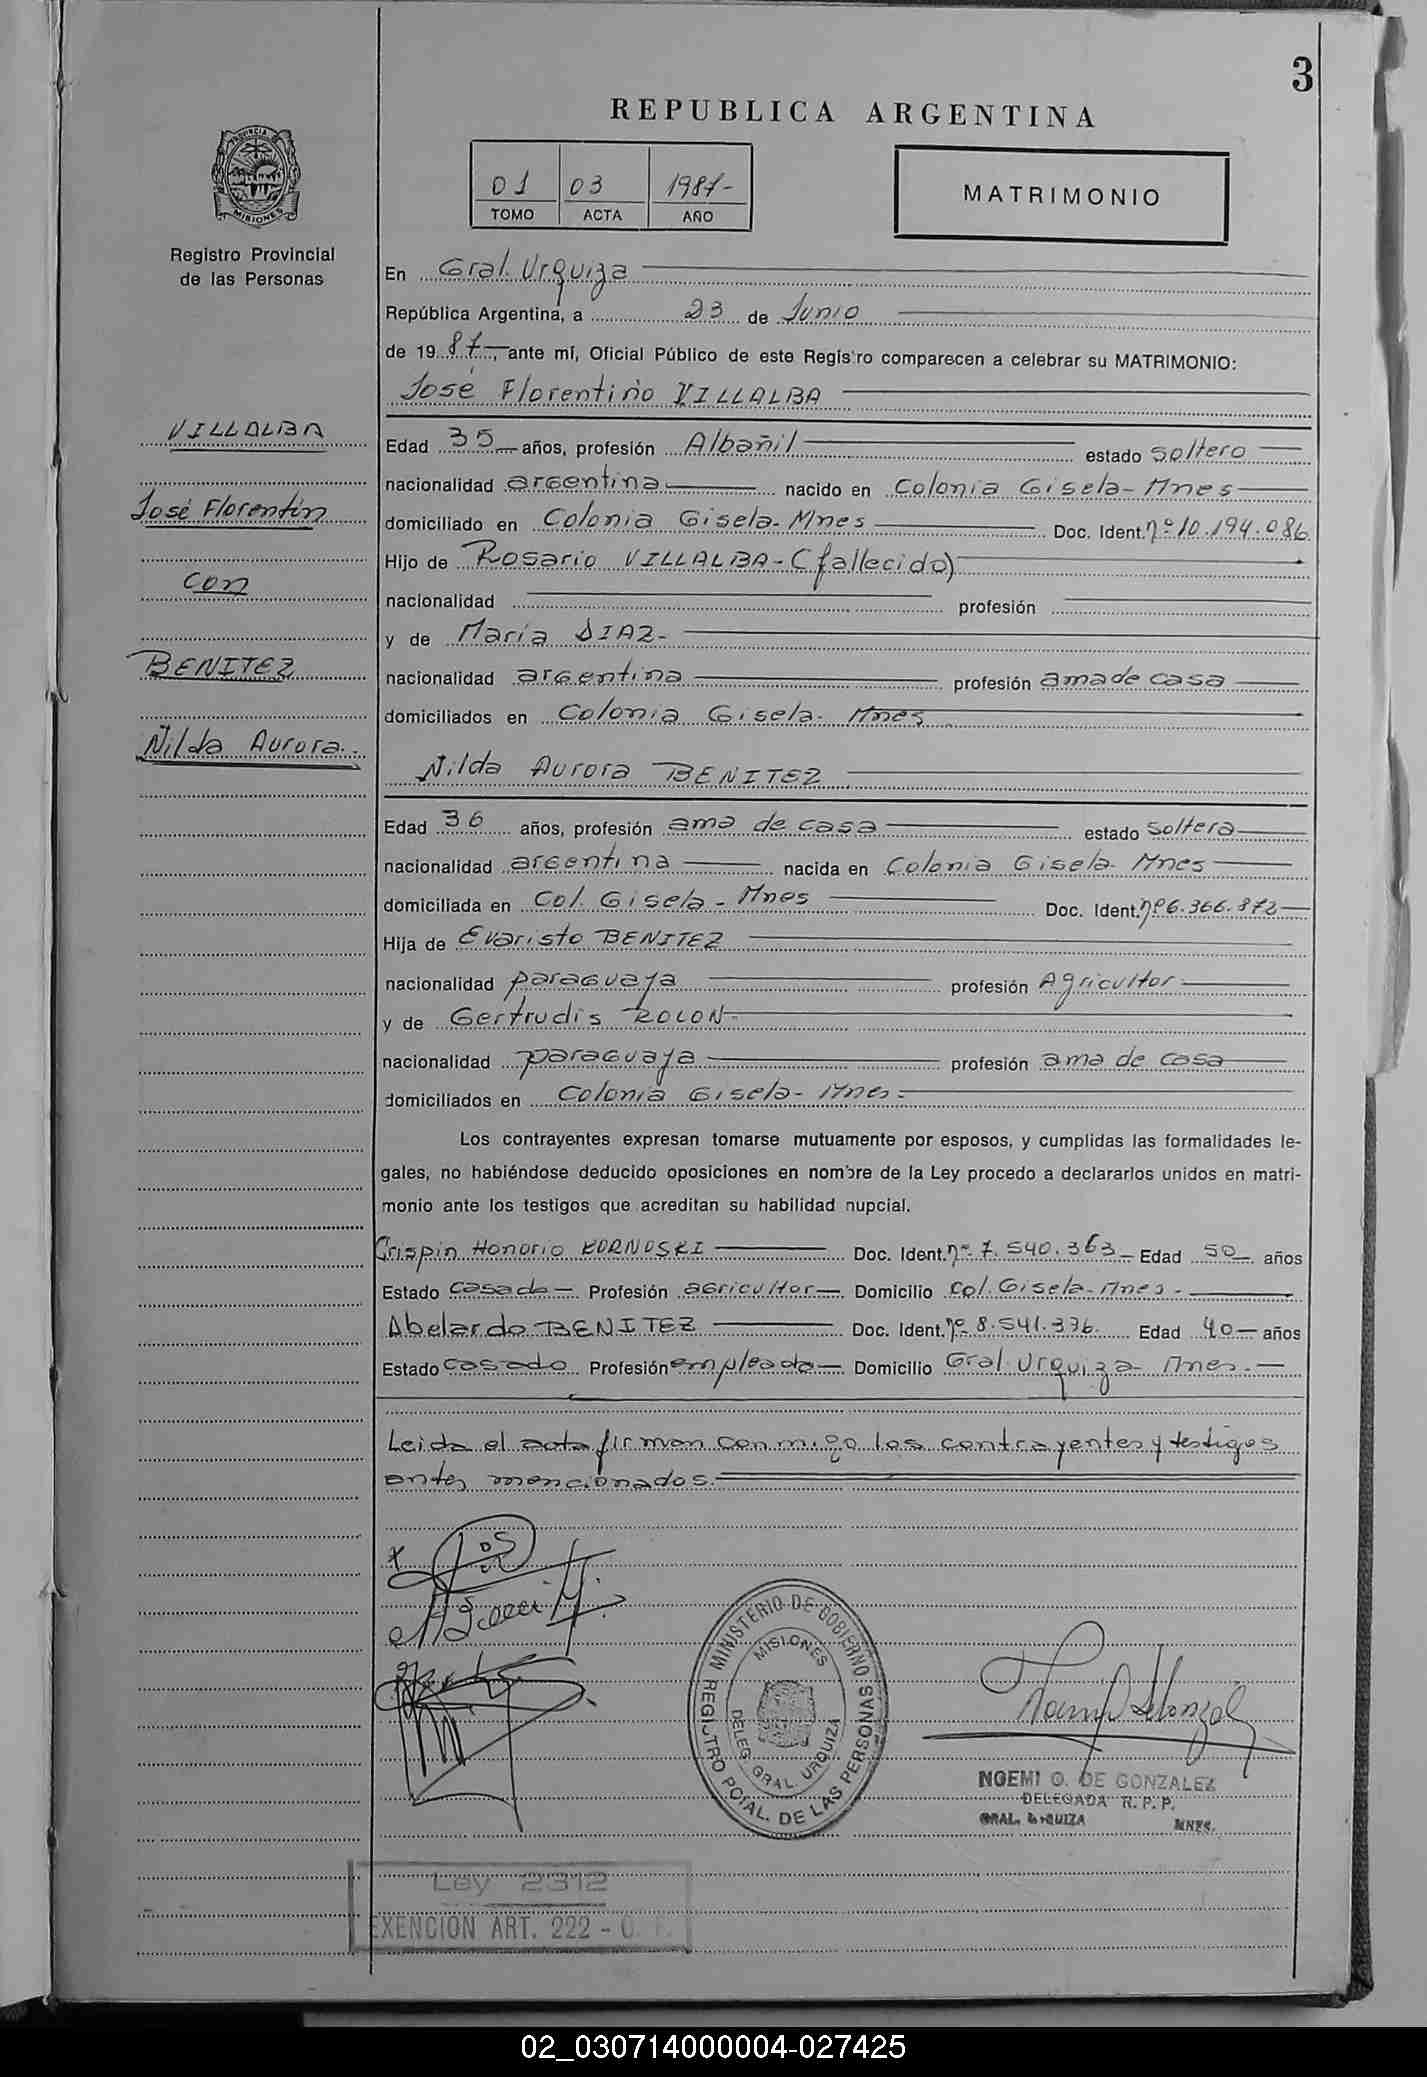 3
REPUBLICA ARGENTINA
PROVINCIA DE
MISIONES
Registro Provincial
de las Personas
01 03 1987-
TOMO ACTA AÑO
MATRIMONIO
En Gral. Urquiza
República Argentina, a 23 de Junio
de 19 87, ante mí, Oficial Público de este Registro comparecen a celebrar su MATRIMONIO:
José Florentino VILLALBA
VILLALBA
José Florentín
con
BENITEZ
Nilda Aurora.
Edad 35 años, profesión Albañil estado soltero
nacionalidad argentina nacido en Colonia Gisela-Mnes
domiciliado en Colonia Gisela-Mnes Doc. Ident. nº 10.194.086
Hijo de Rosario VILLALBA-(fallecido)
nacionalidad profesión
y de María DIAZ-
nacionalidad argentina profesión ama de casa
domiciliados en Colonia Gisela- Mnes
Nilda Aurora BENITEZ
Edad 36 años, profesión ama de casa estado soltera
nacionalidad argentina nacida en Colonia Gisela- Mnes
domiciliada en Col. Gisela - Mnes Doc. Ident. nº 6.366.872
Hija de Evaristo BENITEZ
nacionalidad paraguaya profesión Agricultor
y de Gertrudis ROLON-
nacionalidad paraguaya profesión ama de casa
domiciliados en Colonia Gisela- Mnes-
Los contrayentes expresan tomarse mutuamente por esposos, y cumplidas las formalidades le-
gales, no habiéndose deducido oposiciones en nombre de la Ley procedo a declararlos unidos en matri-
monio ante los testigos que acreditan su habilidad nupcial.
Crispin Honorio KORNOSKI Doc. Ident. nº 7.540.363 Edad 50 años
Estado casado Profesión agricultor Domicilio Col. Gisela-Mnes-
Abelardo BENITEZ Doc. Ident. nº 8.541.376. Edad 40 años
Estado casado Profesión empleado Domicilio Gral Urquiza- Mnes.
Leida el acta firman conmigo los contrayentes y testigos
antes mencionados.
MINISTERIO DE GOBIERNO
REGISTRO PCIAL. DE LAS PERSONAS
MISIONES
DELEG. GRAL. URQUIZA
NOEMI G. DE GONZALEZ
DELEGADA R. P. P.
GRAL. URQUIZA MNES.
Ley 2312
EXENCION ART. 222 -
02_030714000004-027425